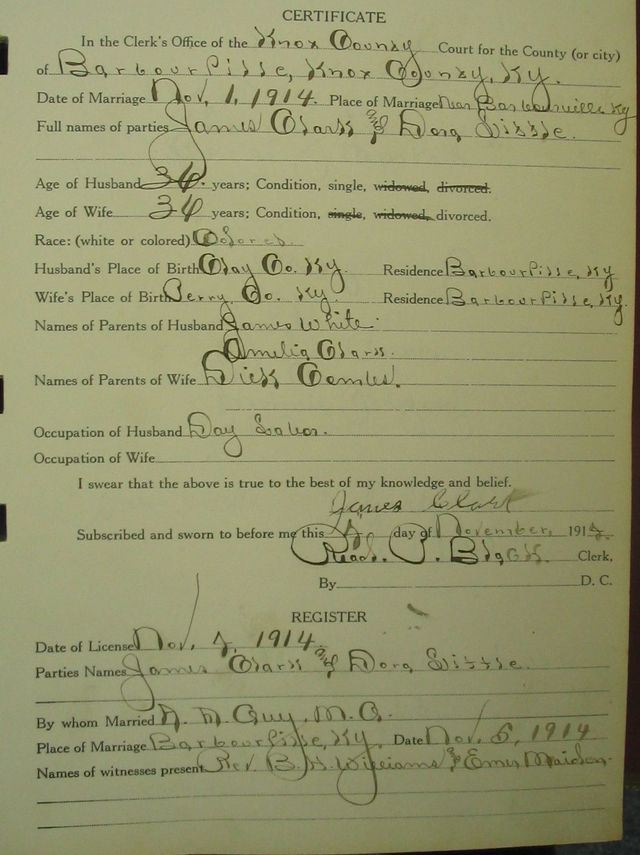 CERTIFICATE
In the Clerk's Office of the Knox County Court for the County (or city)
of Barbourville, Knox County, Ky.
Date of Marriage Nov, 1, 1914. Place of Marriage Near Barbourville Ky
Full names of parties James Clark and Dora Little.
Age of Husband 36. years; Condition, single, widowed, divorced.
Age of Wife 36 years; Condition, single, widowed, divorced.
Race: (white or colored) Colored.
Husband's Place of Birth Clay Co. Ky. Residence Barbourville, Ky
Wife's Place of Birth Perry, Co. Ky. Residence Barbourville, Ky.
Names of Parents of Husband James White
Amelia Clark.
Names of Parents of Wife Dick Combs.
Occupation of Husband Day Labor.
Occupation of Wife
I swear that the above is true to the best of my knowledge and belief.
James Clark
Subscribed and sworn to before me this day of November, 191
Read. P. Black Clerk,
By D. C.
REGISTER
Date of License Nov. 1914
Parties Names James Clark and Dora Little.
By whom Married Guy, M.G.
Place of Marriage Barbourville, Ky, Date Nov. 5, 1914
Names of witnesses present Rev. B. H. Williams, & Maiden.